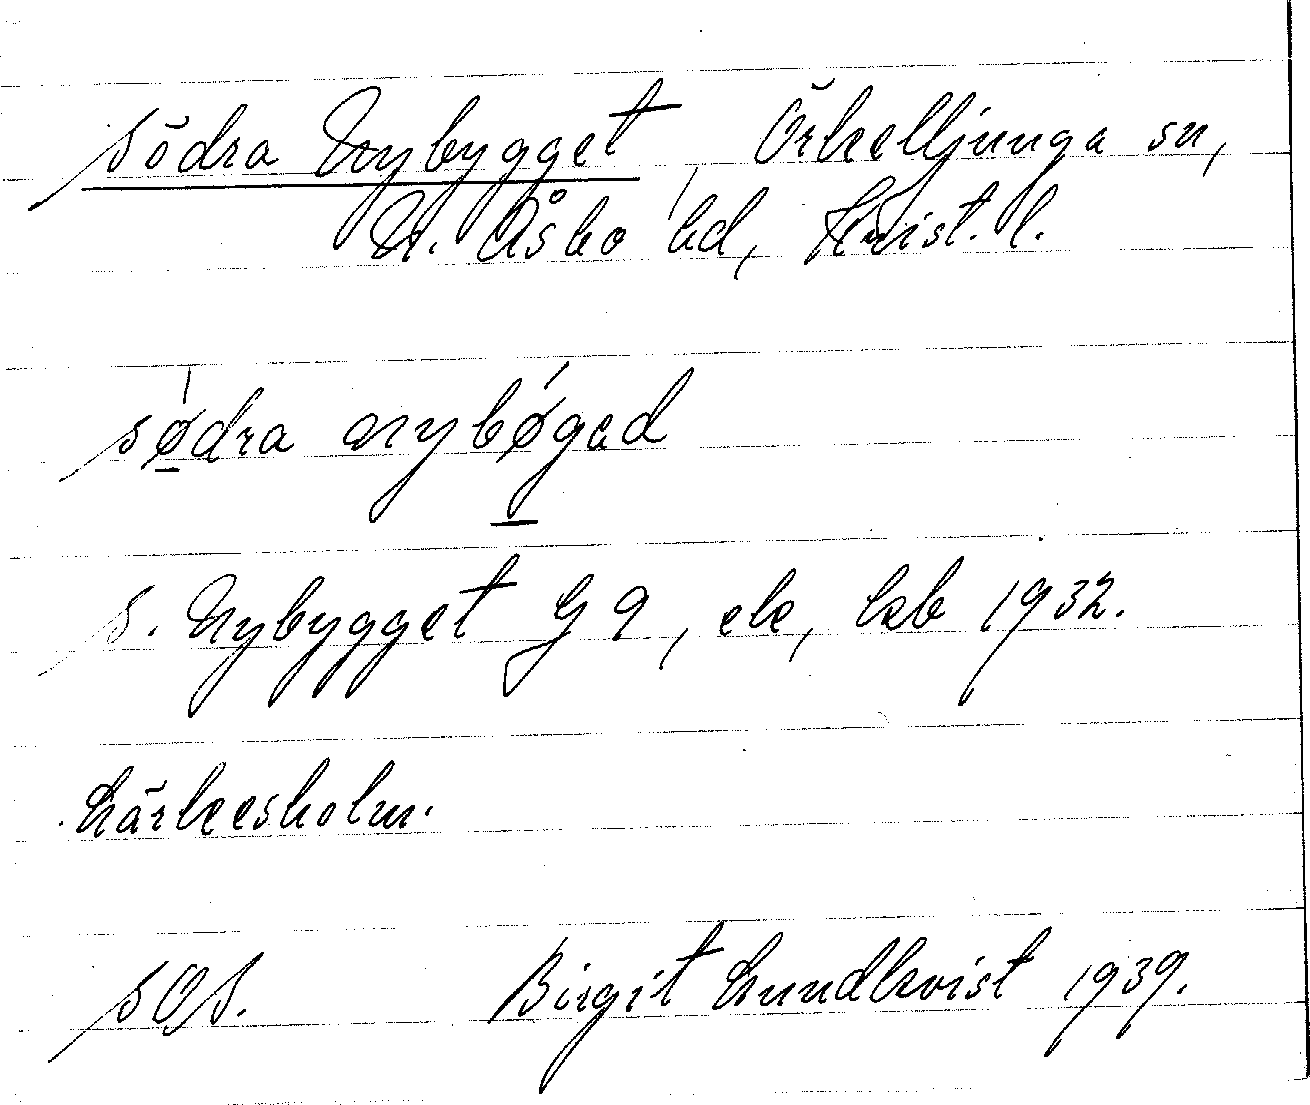 Södra Nybygget, Örkelljunga sn,
N. Åsbo hd, Krist. l.
södra nybøgad
S. Nybygget Gg, ek, lkb 1932.
Lärkesholm.
SOS. Birgit Lundkvist 1939.